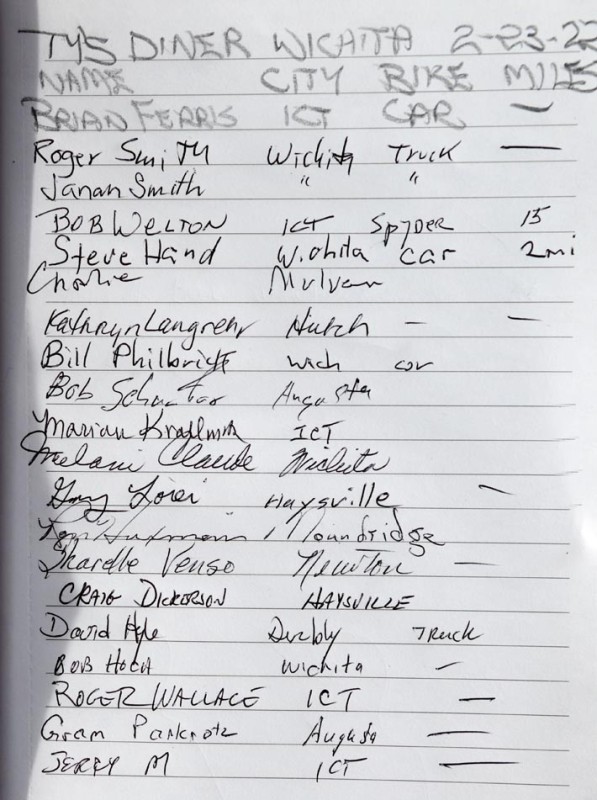 TYS DINER WICHITA 2-23-22
NAME CITY BIKE MILES
BRIAN FERRIS ICT CAR —
Roger Smith Wichita Truck —
Janan Smith " "
BOB WELTON ICT SPYDER 15
Steve Hand Wichita car 2mi
Charlie Mulvan
Kathryn Langrehr Hutch — —
Bill Philbrick wich car
Bob Augusta
Marian ICT
Melani Claude Wichita
Gary Haysville —
Moundridge
Newton —
CRAIG DICKERSON HAYSVILLE
David Hyle Derby Truck
BOB HOCH Wichita —
ROGER WALLACE ICT —
Gram Augusta —
JERRY M ICT —